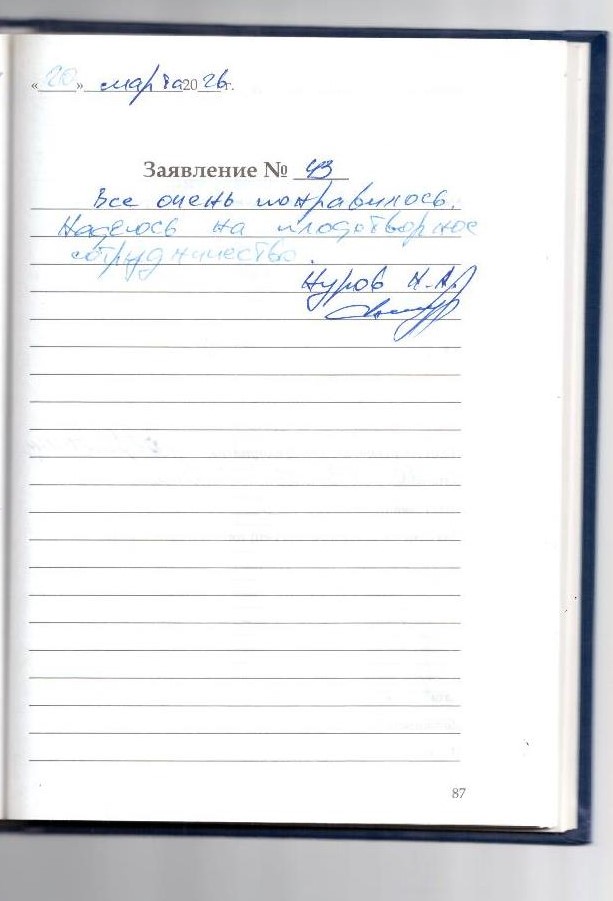 «20» марта 2026г.
Заявление № 43
Все очень понравилось.
Надеюсь на плодотворное
сотрудничество.
Нуров Н.А.
87